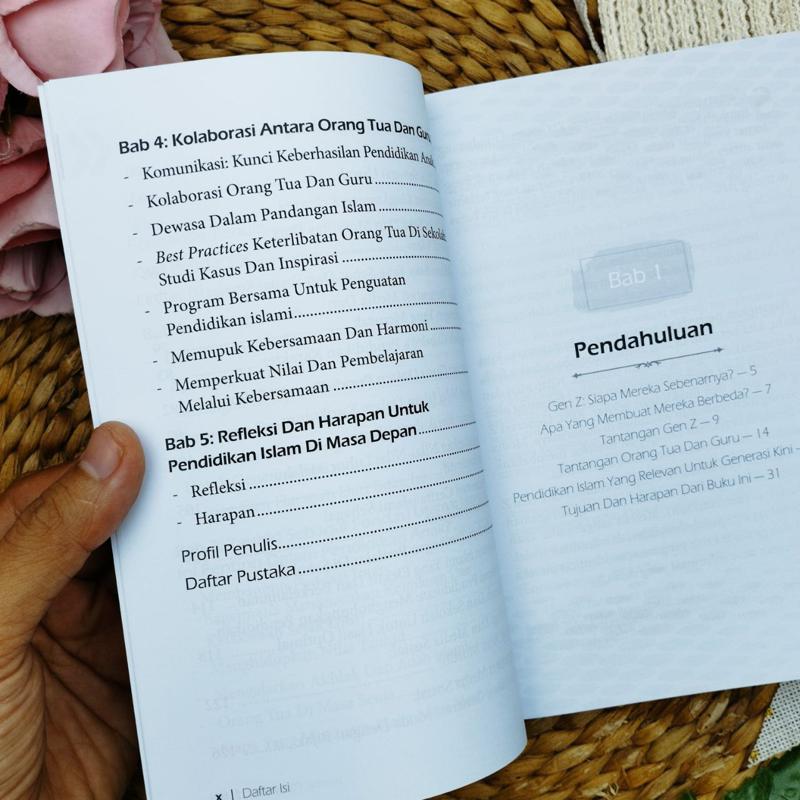 Bab 4: Kolaborasi Antara Orang Tua Dan Guru
- Komunikasi: Kunci Keberhasilan Pendidikan Anak
- Kolaborasi Orang Tua Dan Guru
- Dewasa Dalam Pandangan Islam
- Best Practices Keterlibatan Orang Tua Di Sekolah
Studi Kasus Dan Inspirasi
- Program Bersama Untuk Penguatan
Pendidikan islami
- Memupuk Kebersamaan Dan Harmoni
- Memperkuat Nilai Dan Pembelajaran
Melalui Kebersamaan
Bab 5: Refleksi Dan Harapan Untuk
Pendidikan Islam Di Masa Depan
- Refleksi
- Harapan
Profil Penulis
Daftar Pustaka
x | Daftar Isi
Bab 1
Pendahuluan
Gen Z: Siapa Mereka Sebenarnya? — 5
Apa Yang Membuat Mereka Berbeda? — 7
Tantangan Gen Z — 9
Tantangan Orang Tua Dan Guru — 14
Pendidikan Islam Yang Relevan Untuk Generasi Kini —
Tujuan Dan Harapan Dari Buku Ini — 31